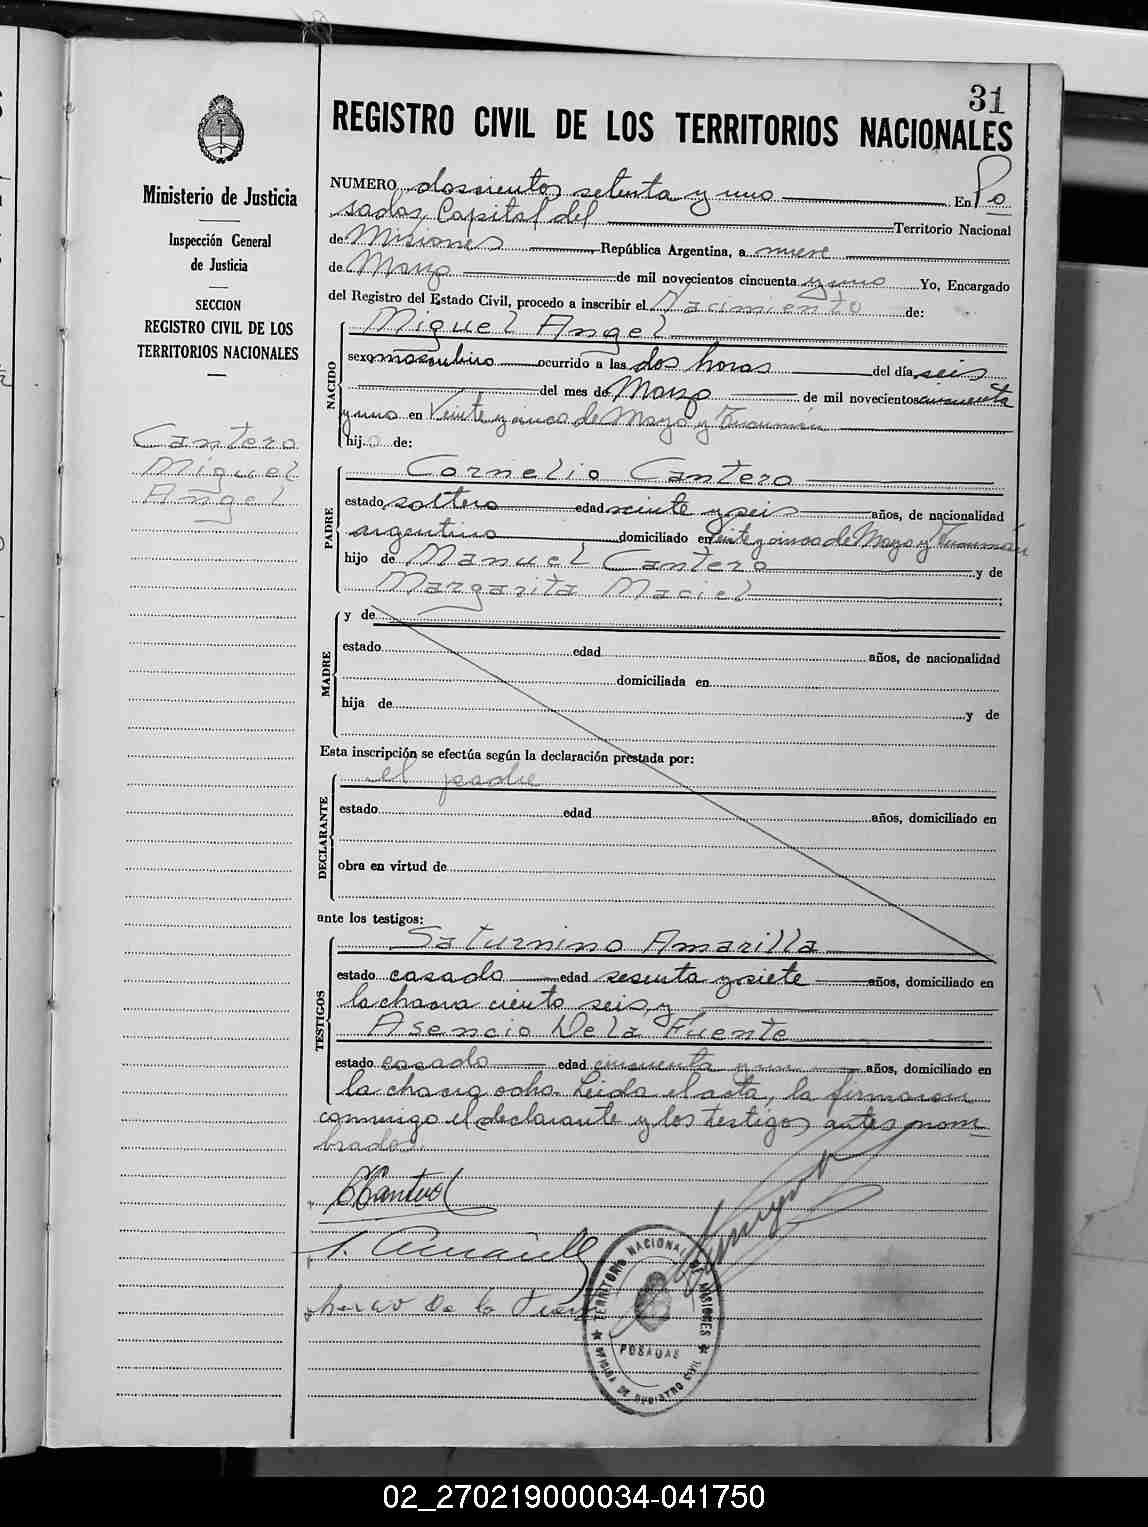 31
REGISTRO CIVIL DE LOS TERRITORIOS NACIONALES
Ministerio de Justicia
Inspección General
de Justicia
SECCION
REGISTRO CIVIL DE LOS
TERRITORIOS NACIONALES
Cantero
Miguel
Angel
NUMERO doscientos setenta y uno En Po
sadas, Capital del Territorio Nacional
de Misiones, República Argentina, a nueve
de Marzo de mil novecientos cincuenta y uno Yo, Encargado
del Registro del Estado Civil, procedo a inscribir el Nacimiento de:
NACIDO
Miguel Angel
sexo masculino ocurrido a las dos horas del día seis
del mes de Marzo de mil novecientos cincuenta
y uno en Veinte y cinco de Mayo y Tucumán
hijo de:
PADRE
Cornelio Cantero
estado soltero edad veinte y seis años, de nacionalidad
argentino domiciliado en Veinte y cinco de Mayo y Tucumán
hijo de Manuel Cantero y de
Margarita Maciel
MADRE
y de
estado edad años, de nacionalidad
domiciliada en
hija de y de
Esta inscripción se efectúa según la declaración prestada por:
DECLARANTE
el padre
estado edad años, domiciliado en
obra en virtud de
ante los testigos:
TESTIGOS
Saturnino Amarilla
estado casado edad sesenta y siete años, domiciliado en
la chacra ciento seis, y
Asencio De La Fuente
estado casado edad cincuenta y un años, domiciliado en
la chacra ocho. Leida el acta, la firmaron
conmigo el declarante y los testigos antes nom-
brados.
CCantero
S. Amarilla
De la Fuen
TERRITORIO NACIONAL DE MISIONES
POSADAS
OFICINA DE REGISTRO CIVIL
02_270219000034-041750